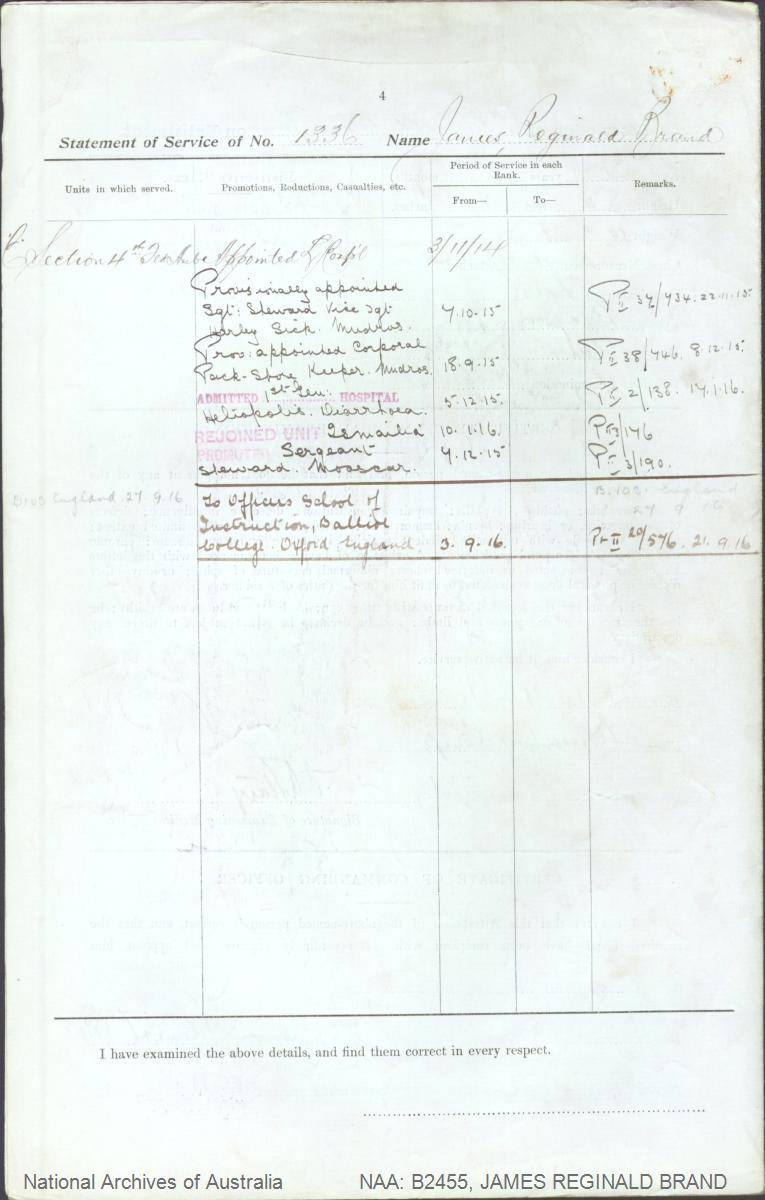 4
Statement of Service of No. 1336 Name James Reginald Brand
Units in which served. Promotions, Reductions, Casualties, etc. Period of Service in each Rank. Remarks.
From— To—
Section 4th Appointed L/Corpl 3/11/14
Provisionally appointed
Sgt: Steward Vice Sgt 7.10.15 Pt II 37/734. 22.11.15.
Harley Sick. Mudros.
Prov: appointed Corporal
Pack-Store Keeper. Mudros. 18.9.15 Pt II 38/746. 8.12.15.
ADMITTED 1st Gen: HOSPITAL
Heliopolis. Diarrhoea. 5.12.15. Pt II 2/138. 17.1.16.
REJOINED UNIT Ismailia 10.1.16. Pt II 3/176
PROMOTED Sergeant 7.12.15
Steward. Moascar. Pt II 3/190.
B103 England 27.9.16 To Officers School of B.103. England
Instruction, Balliol 27 9 16
College. Oxford England 3.9.16. Pt II 20/576. 21.9.16
I have examined the above details, and find them correct in every respect.
National Archives of Australia NAA: B2455, JAMES REGINALD BRAND